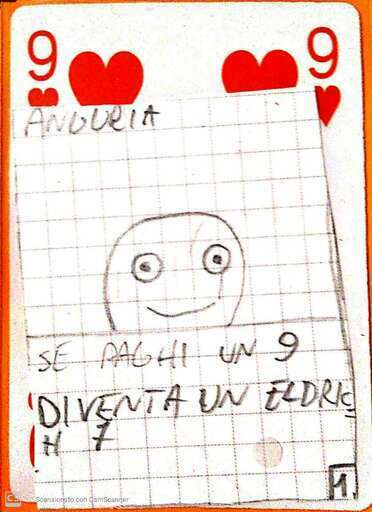 9 9
ANGURIA
SE PAGHI UN 9
DIVENTA UN ELDRIC
H 7
1
CS Scansionato con CamScanner